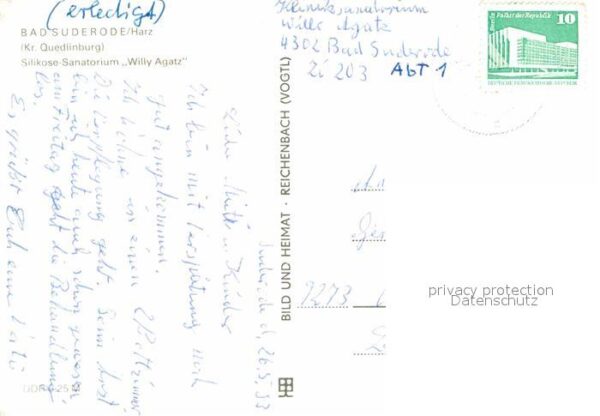 (erledigt)
BAD SUDERODE/Harz
(Kr. Quedlinburg)
Silikose-Sanatorium „Willy Agatz"
Kliniksanatorium
Willi Agatz
4302 Bad Suderode
Zi 203 Abt 1
Berlin Palast der Republik
10
DEUTSCHE DEMOKRATISCHE REPUBLIK
Suderode d. 26.5.
Liebe Mutti u. Kinder
Ich bin mit Verspätung noch
gut angekommen.
Ich wohne in einen 2 Bettzimmer
Die Verpflegung geht. Beim Arzt
bin ich heute auch schon gewesen
am Freitag geht die Behandlung
los.
Es grüßt Euch euer Vati
BILD UND HEIMAT · REICHENBACH (VOGTL)
9273
privacy protection
Datenschutz